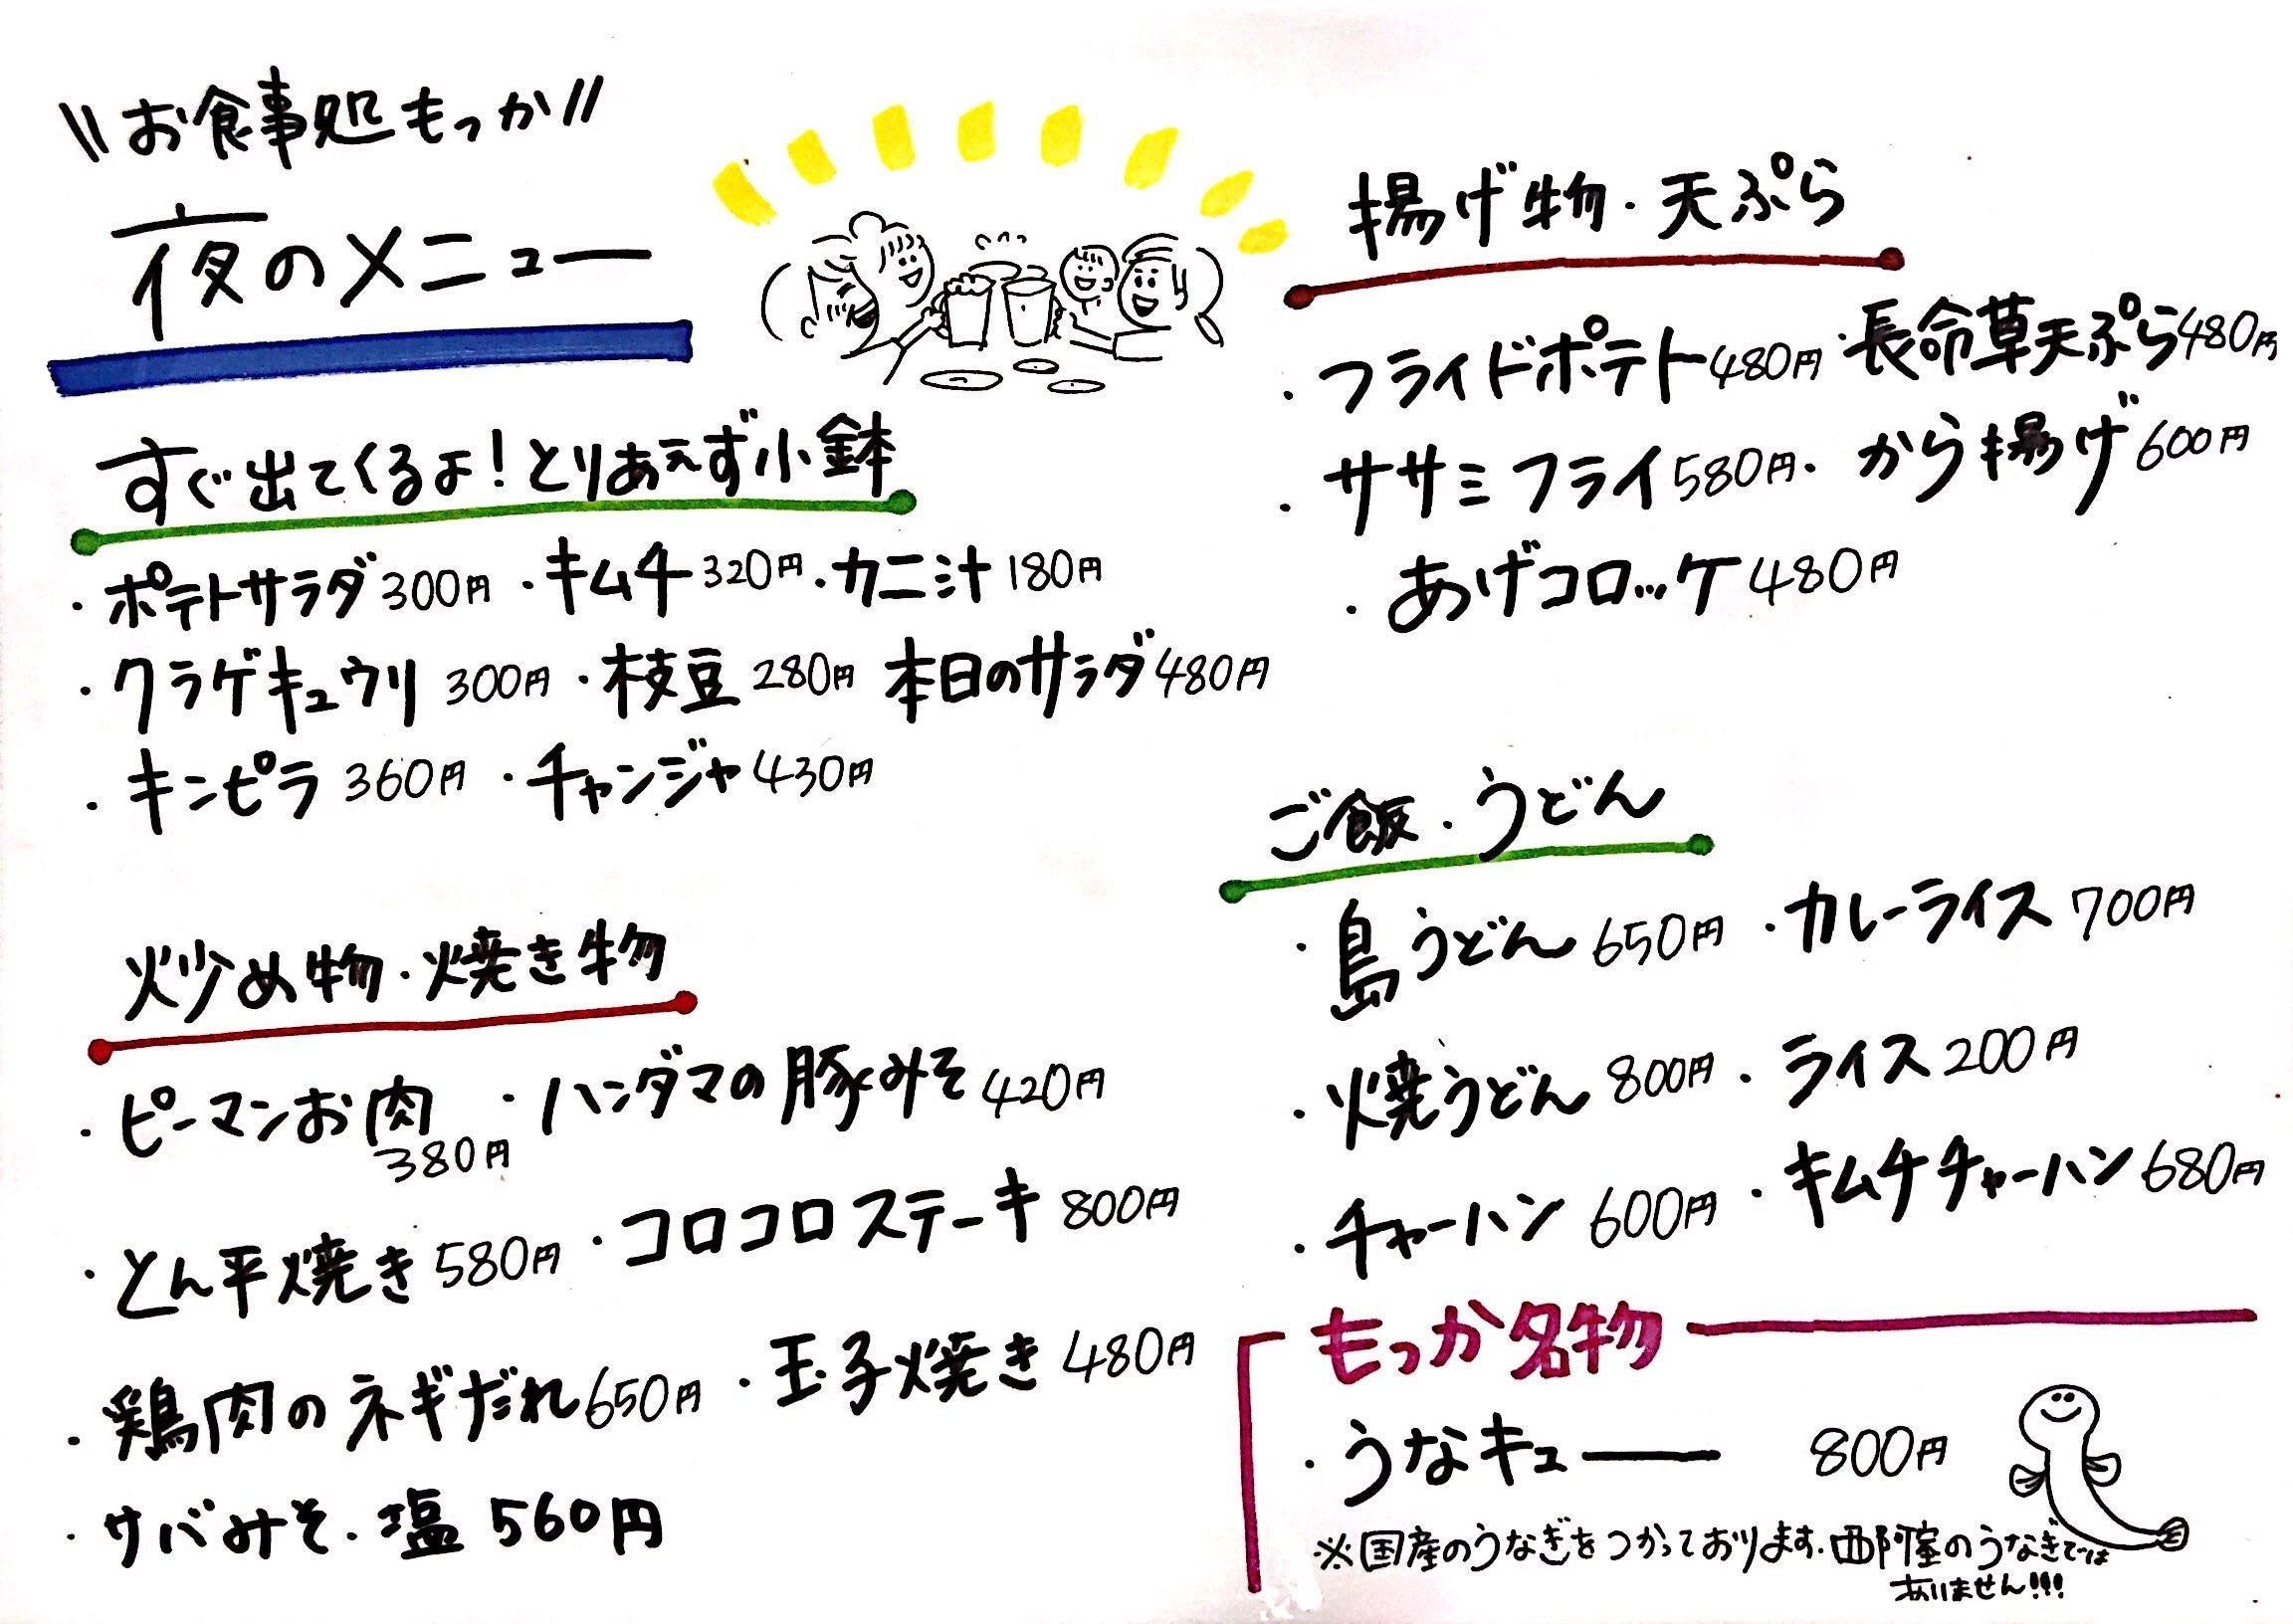 \\お食事処もっか//
夜のメニュー
すぐ出てくるよ!とりあえず小鉢
・ポテトサラダ300円 ・キムチ320円 ・カニ汁180円
・クラゲキュウリ 300円 ・枝豆280円 本日のサラダ480円
・キンピラ 360円 ・チャンジャ430円
炒め物・焼き物
・ピーマンお肉 380円 ・ハンダマの豚みそ420円
・とん平焼き580円 ・コロコロステーキ800円
・鶏肉のネギだれ650円 ・玉子焼き480円
・サバみそ・塩 560円
揚げ物・天ぷら
・フライドポテト480円 ・長命草天ぷら480円
・ササミフライ580円 ・から揚げ600円
・あげコロッケ480円
ご飯・うどん
・島うどん 650円 ・カレーライス 700円
・焼うどん 800円 ・ライス 200円
・チャーハン 600円 ・キムチチャーハン680円
もっか名物
・うなキュー 800円
※国産のうなぎをつかっております。西阿室のうなぎでは
ありません!!!